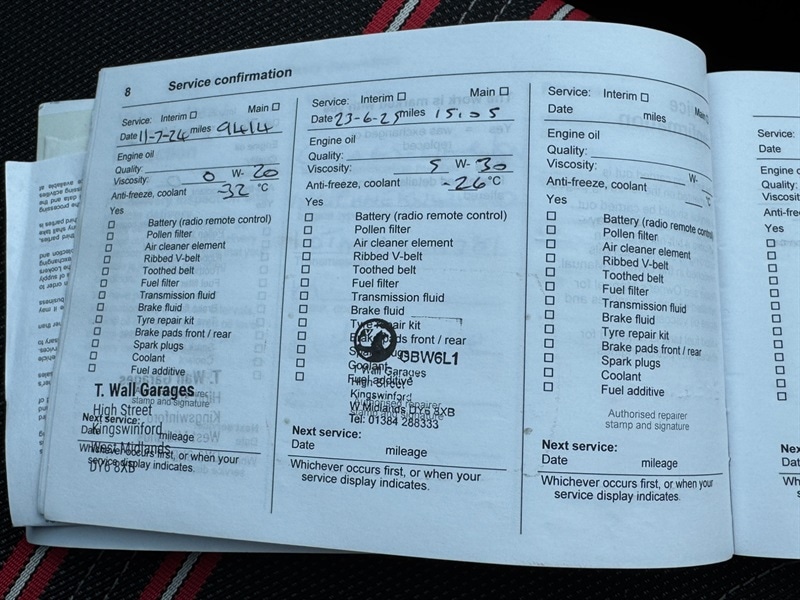 8 Service confirmation
Service: Interim ☐ Main ☐
Date 11-7-24 miles 9414
Engine oil
Quality:
Viscosity: 0 W- 20
Anti-freeze, coolant -32 °C
Yes
☐ Battery (radio remote control)
☐ Pollen filter
☐ Air cleaner element
☐ Ribbed V-belt
☐ Toothed belt
☐ Fuel filter
☐ Transmission fluid
☐ Brake fluid
☐ Tyre repair kit
☐ Brake pads front / rear
☐ Spark plugs
☐ Coolant
☐ Fuel additive
T. Wall Garages
stamp and signature
High Street
Next service:
Kingswinford
Date mileage
West Midlands
Whichever occurs first, or when your
service display indicates.
DY6 8XB
Service: Interim ☐ Main ☐
Date 23-6-25 miles 15,05
Engine oil
Quality:
Viscosity: 5 W- 30
Anti-freeze, coolant -26 °C
Yes
☐ Battery (radio remote control)
☐ Pollen filter
☐ Air cleaner element
☐ Ribbed V-belt
☐ Toothed belt
☐ Fuel filter
☐ Transmission fluid
☐ Brake fluid
☐ Tyre repair kit
☐ Brake pads front / rear
GBW6L1
☐ Spark plugs
☐ Coolant
Wall Garages
☐ Fuel additive
High Street
Kingswinford
Authorised repairer
W.Midlands DY6 8XB
stamp and signature
Tel: 01384 288333
Next service:
Date mileage
Whichever occurs first, or when your
service display indicates.
Service: Interim ☐ Main
Date miles
Engine oil
Quality:
Viscosity: W-
Anti-freeze, coolant °C
Yes
☐ Battery (radio remote control)
☐ Pollen filter
☐ Air cleaner element
☐ Ribbed V-belt
☐ Toothed belt
☐ Fuel filter
☐ Transmission fluid
☐ Brake fluid
☐ Tyre repair kit
☐ Brake pads front / rear
☐ Spark plugs
☐ Coolant
☐ Fuel additive
Authorised repairer
stamp and signature
Next service:
Date mileage
Whichever occurs first, or when your
service display indicates.
Service:
Date
Engine
Quality:
Viscosit
Anti-fre
Yes
Nex
Dat
Wh